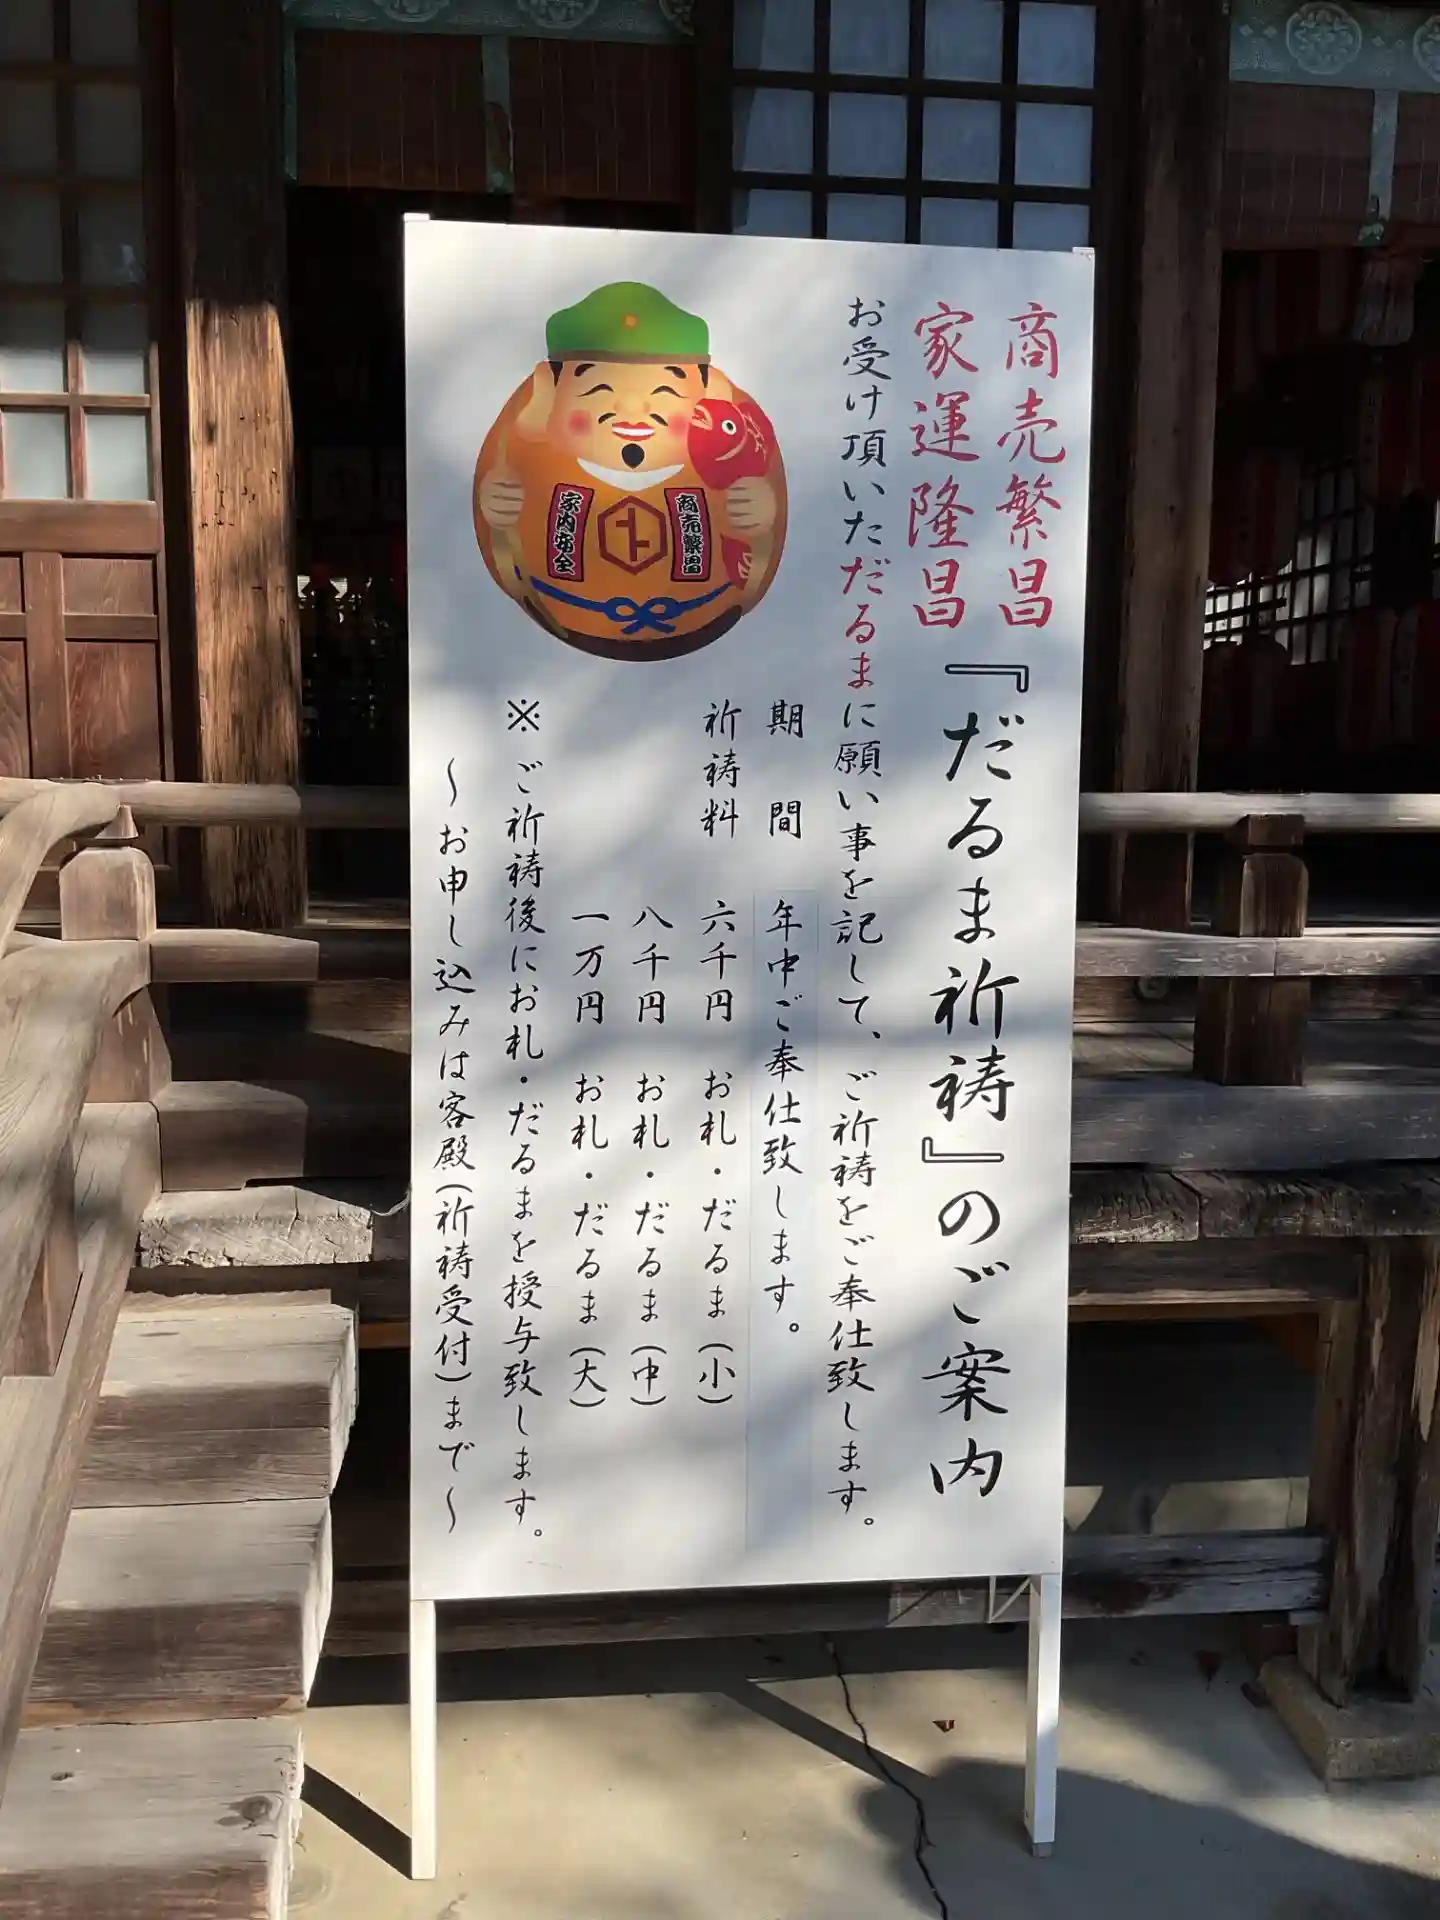 商売繁昌
家運隆昌
『だるま祈祷』のご案内
お受け頂いただるまに願い事を記して、ご祈祷をご奉仕致します。
期間　年中ご奉仕致します。
祈祷料　六千円　お札・だるま(小)
八千円　お札・だるま(中)
一万円　お札・だるま(大)
※ご祈祷後にお札・だるまを授与致します。
～お申し込みは客殿(祈祷受付)まで～
商売繁昌
家内安全